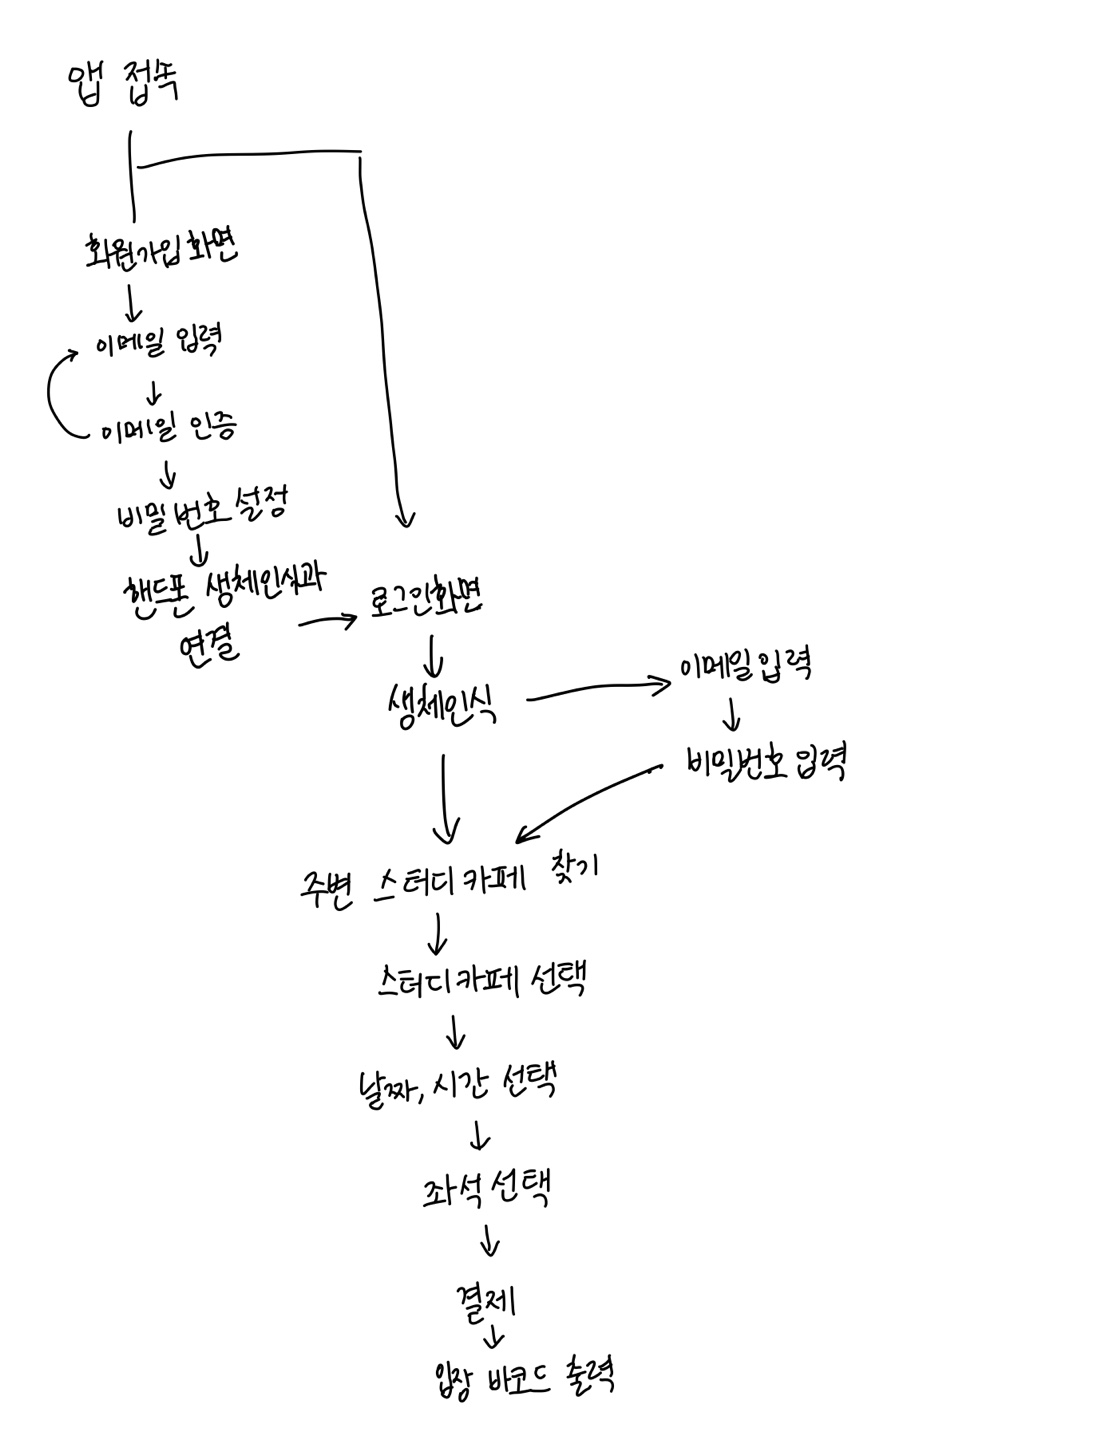 앱 접속
회원가입 화면
이메일 입력
이메일 인증
비밀번호 설정
핸드폰 생체인식과
연결
로그인화면
생체인식
이메일 입력
비밀번호 입력
주변 스터디카페 찾기
스터디카페 선택
날짜, 시간 선택
좌석 선택
결제
입장 바코드 출력